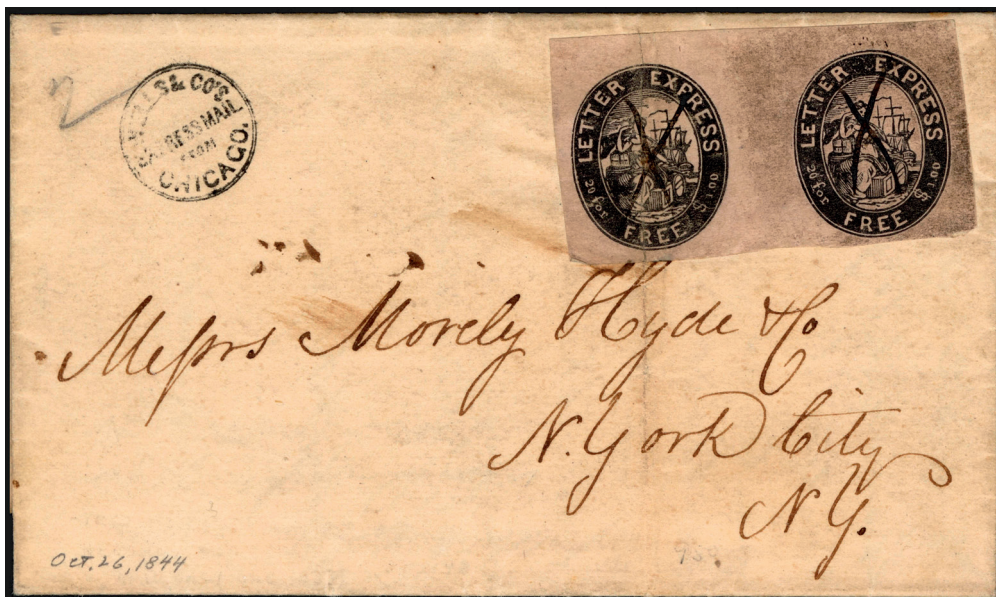 2
WELLS & CO'S
EXPRESS MAIL
FROM
CHICAGO.
LETTER EXPRESS
20 for FREE $1.00
LETTER EXPRESS
20 for FREE $1.00
Messrs Morely Hyde & Co
N. York City
N Y.
Oct. 26, 1844